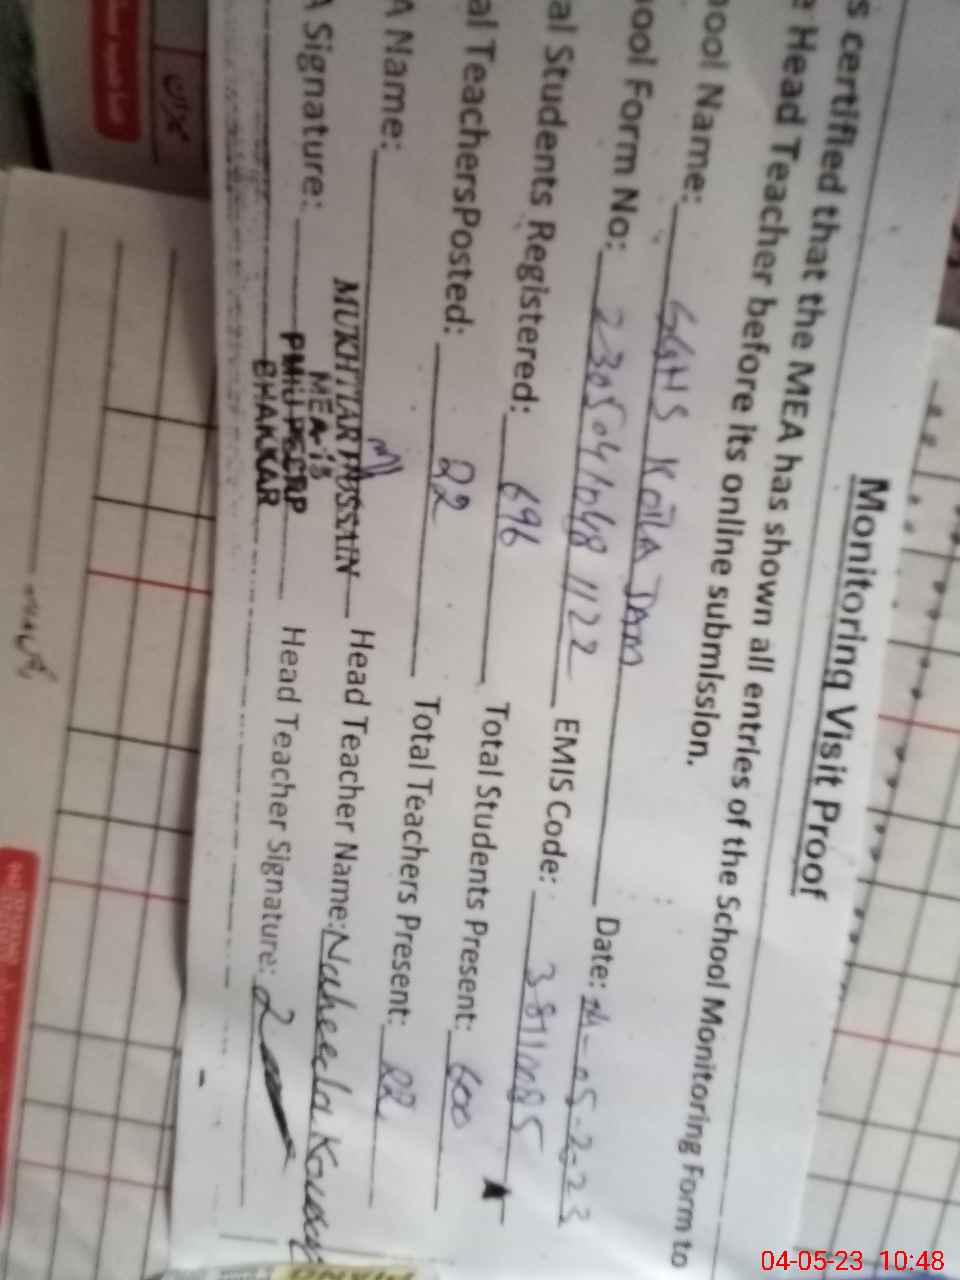 Monitoring Visit Proof
s certified that the MEA has shown all entries of the School Monitoring Form to
e Head Teacher before its online submission.
ool Name: GGHS KOTLA JAM Date: 04-05-2023
ool Form No: 1122 EMIS Code:
al Students Registered: 696 Total Students Present: 600
al TeachersPosted: 22 Total Teachers Present: 22
A Name: MUKHTIAR HUSSAIN Head Teacher Name: Naheela Kousar
A Signature: Head Teacher Signature:
MEA-13
PMIU-PESRP
BHAKKAR
04-05-23 10:48